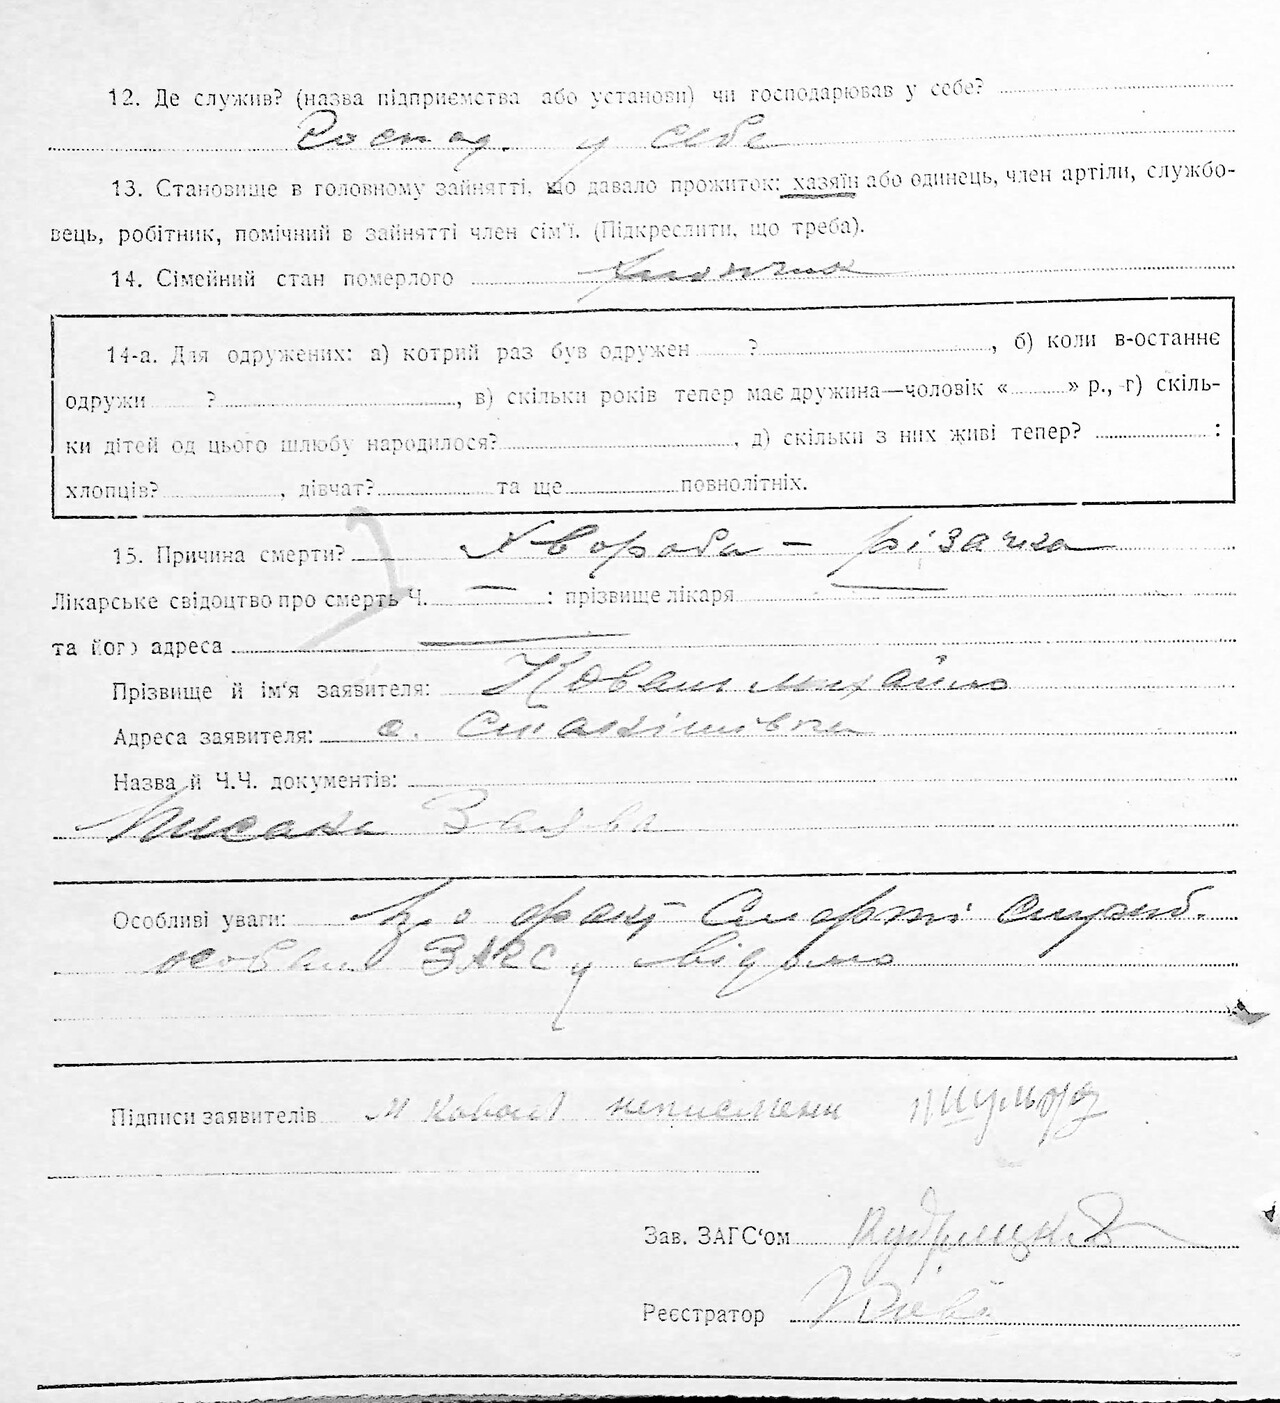 12. Де служив? (назва підприємства або установи) чи господарював у себе?
Господ. у себе
13. Становище в головному зайнятті, що давало прожиток: хазяїн або одинець, член артіли, службо-
вець, робітник, помічний в зайнятті член сім'ї. (Підкреслити, що треба).
14. Сімейний стан померлого
14-а. Для одружених: а) котрий раз був одружен ?, б) коли в-останнє
одружи ?, в) скільки років тепер має дружина—чоловік « » р., г) скіль-
ки дітей од цього шлюбу народилося?, д) скільки з них живі тепер? :
хлопців?, дівчат? та ще повнолітніх.
15. Причина смерти? Хвороба – різачка
Лікарське свідоцтво про смерть Ч. — : прізвище лікаря —
та його адреса —
Прізвище й ім'я заявителя: Коваль Михайло
Адреса заявителя: с.
Назва й Ч.Ч. документів:
Писана Заява
Особливі уваги: Цей факт Смерті
особам ЗАГСу відомо
Підписи заявителів М Коваль неписмени
Зав. ЗАГС'ом
Реєстратор